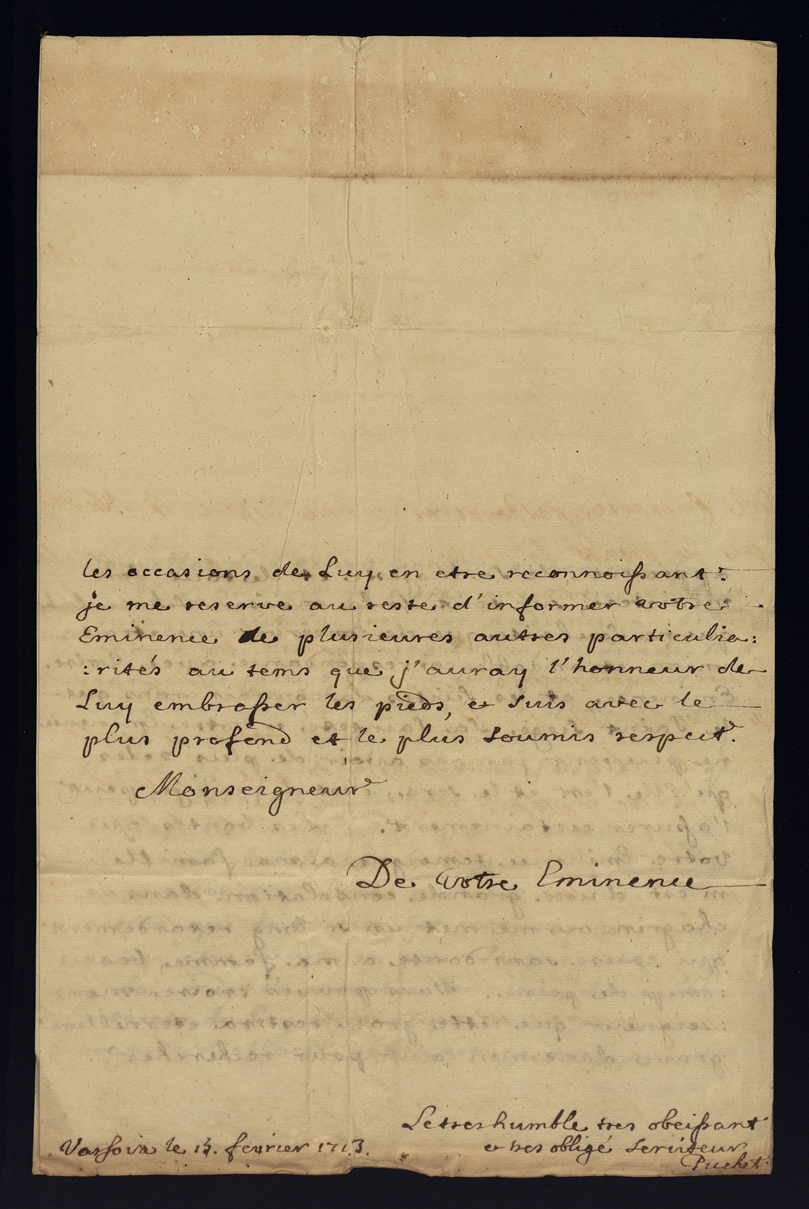 les occasions de Luy en etre reconnoissant:
je me reserve au reste d'informer votre
Eminence de plusieures autres particulia:
:rités au tems que j'auray l'honneur de
Luy embrasser les pieds, et suis avec le
plus profond et le plus soumis respect.
Monseigneur
De votre Eminence
Le tres humble tres obeissant
et tres obligé serviteur
Puchet
Varsovie le 15. fevrier 1713.